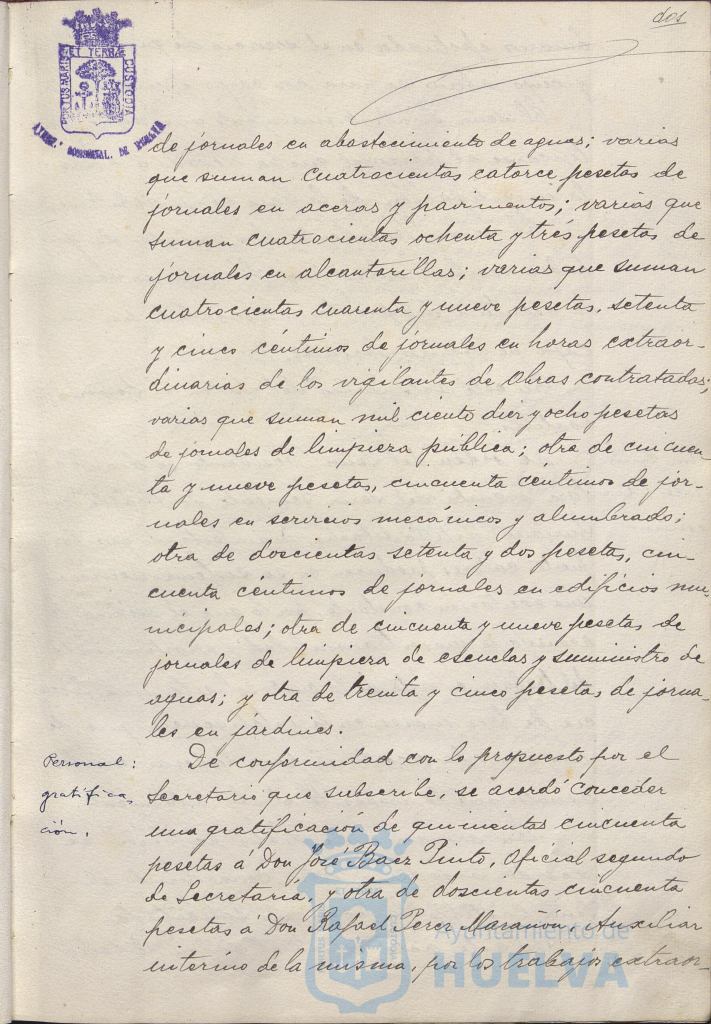 dos
PORTUS MARIS
ET TERRAE
CUSTODIA
DE HUELVA
de jornales en abastecimiento de aguas; varias
que suman cuatrocientas catorce pesetas de
jornales en aceras y pavimentos; varias que
suman cuatrocientas ochenta y tres pesetas de
jornales en alcantarillas; varias que suman
cuatrocientas cuarenta y nueve pesetas, setenta
y cinco céntimos de jornales en horas extraor-
dinarias de los vigilantes de obras contratadas;
varias que suman mil ciento diez y ocho pesetas
de jornales de limpieza pública; otra de cincuen-
ta y nueve pesetas, cincuenta céntimos de jor-
nales en servicios mecánicos y alumbrado;
otra de doscientas setenta y dos pesetas, cin-
cuenta céntimos de jornales en edificios mu-
nicipales; otra de cincuenta y nueve pesetas de
jornales de limpieza de escuelas y suministro de
aguas; y otra de treinta y cinco pesetas, de jorna-
les en jardines.
Personal:
gratifica-
ción.
De conformidad con lo propuesto por el
Secretario que subscribe, se acordó conceder
una gratificación de quinientas cincuenta
pesetas á Don José Baez Pinto, Oficial segundo
de Secretaría, y otra de doscientas cincuenta
pesetas á Don Rafael Perez Marañón, Auxiliar
interino de la misma, por los trabajos extraor-
Ayuntamiento de
HUELVA